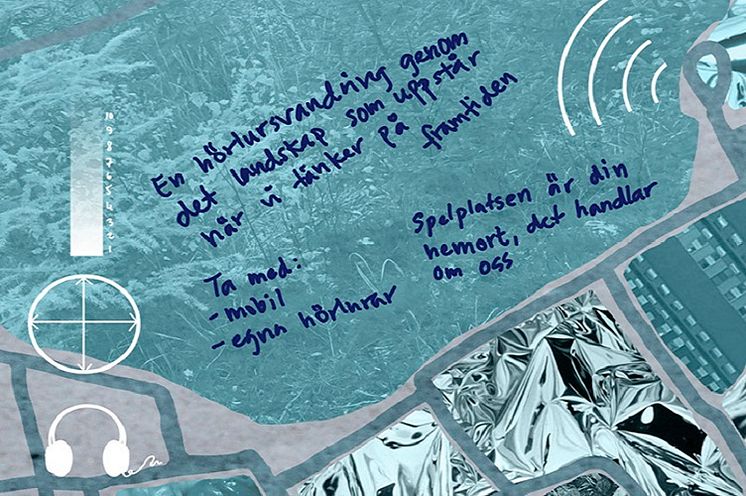 En hörlursvandring genom
det landskap som uppstår
när vi tänker på framtiden
Ta med:
- mobil
- egna hörlurar
Spelplatsen är din
hemort, det handlar
om oss
10
9
8
7
6
5
4
3
2
1